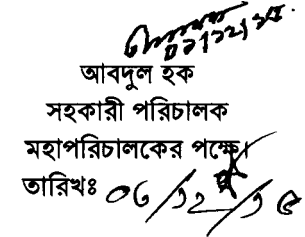 ০৬/১২/১৫
আবদুল হক
সহকারী পরিচালক
মহাপরিচালকের পক্ষে।
তারিখঃ ০৬/১২/১৫